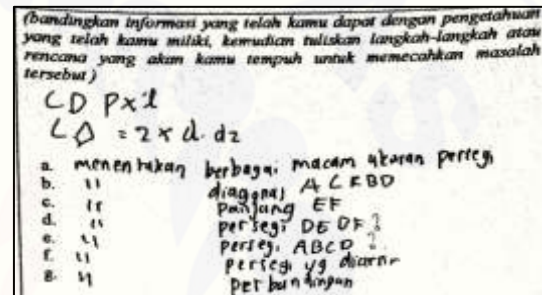 (bandingkan informasi yang telah kamu dapat dengan pengetahuan
yang telah kamu miliki, kemudian tuliskan langkah-langkah atau
rencana yang akan kamu tempuh untuk memecahkan masalah
tersebut)
L▭ P x l
L◇ = 2 x d. d2
a. menentukan berbagai macam ukuran persegi
b. " diagonal AC & BD
c. " panjang EF
d. " persegi DE DF ?
e. " persegi ABCD ?
f. " persegi yg diarsir
g. " perbandingan